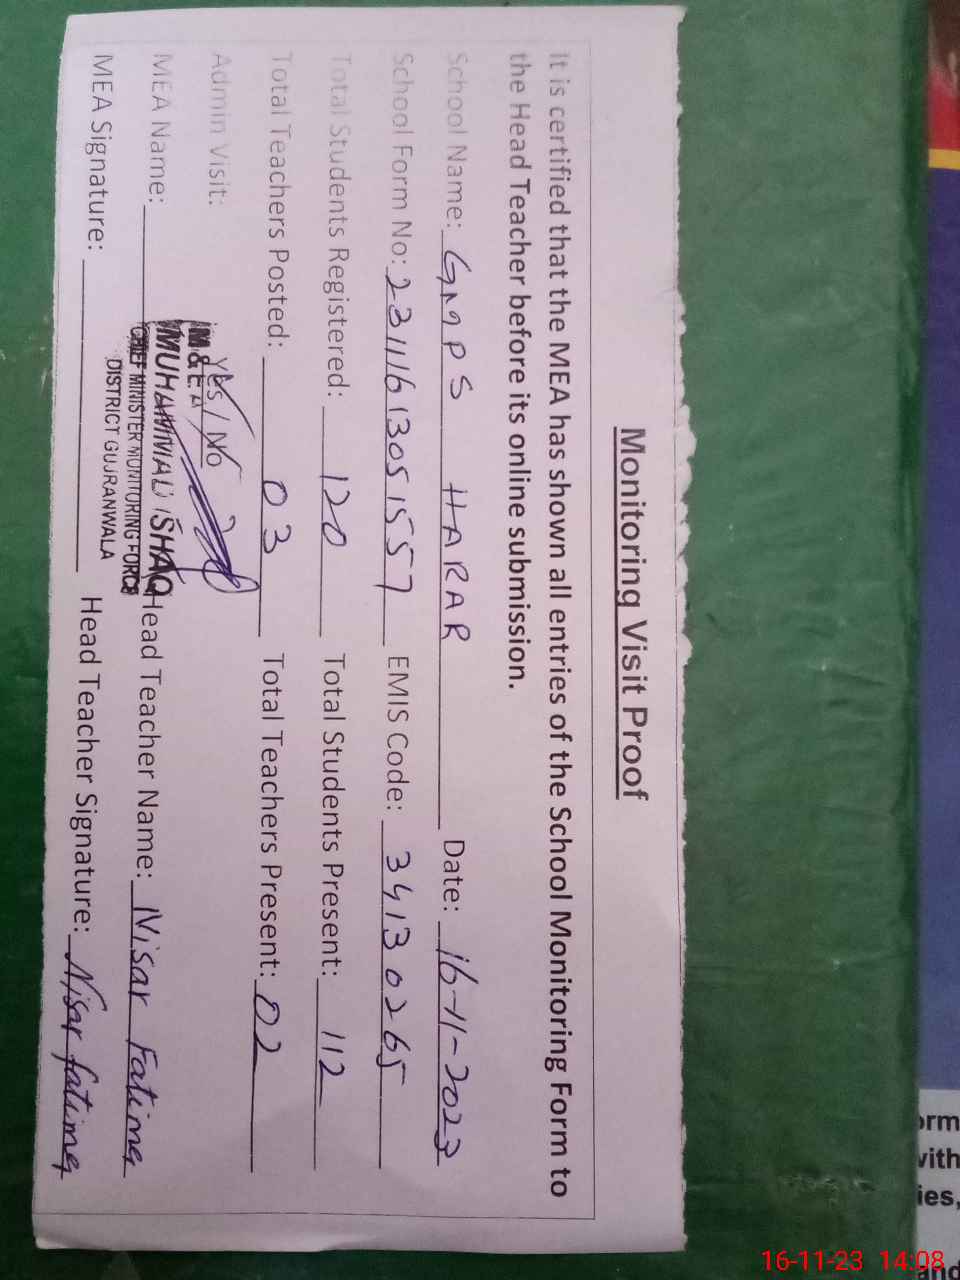 Monitoring Visit Proof
It is certified that the MEA has shown all entries of the School Monitoring Form to
the Head Teacher before its online submission.
School Name: GMPS HARAR Date: 16-11-2023
School Form No: 23111613051557 EMIS Code: 34130265
Total Students Registered: 120 Total Students Present: 112
Total Teachers Posted: 03 Total Teachers Present: 02
Admin Visit: Yes / No
M & E A
MEA Name: MUHAMMAD ISHAQ Head Teacher Name: Nisar Fatima
CHIEF MINISTER MONITORING FORCE
DISTRICT GUJRANWALA
MEA Signature: Head Teacher Signature: Nisar fatima
16-11-23 14:08